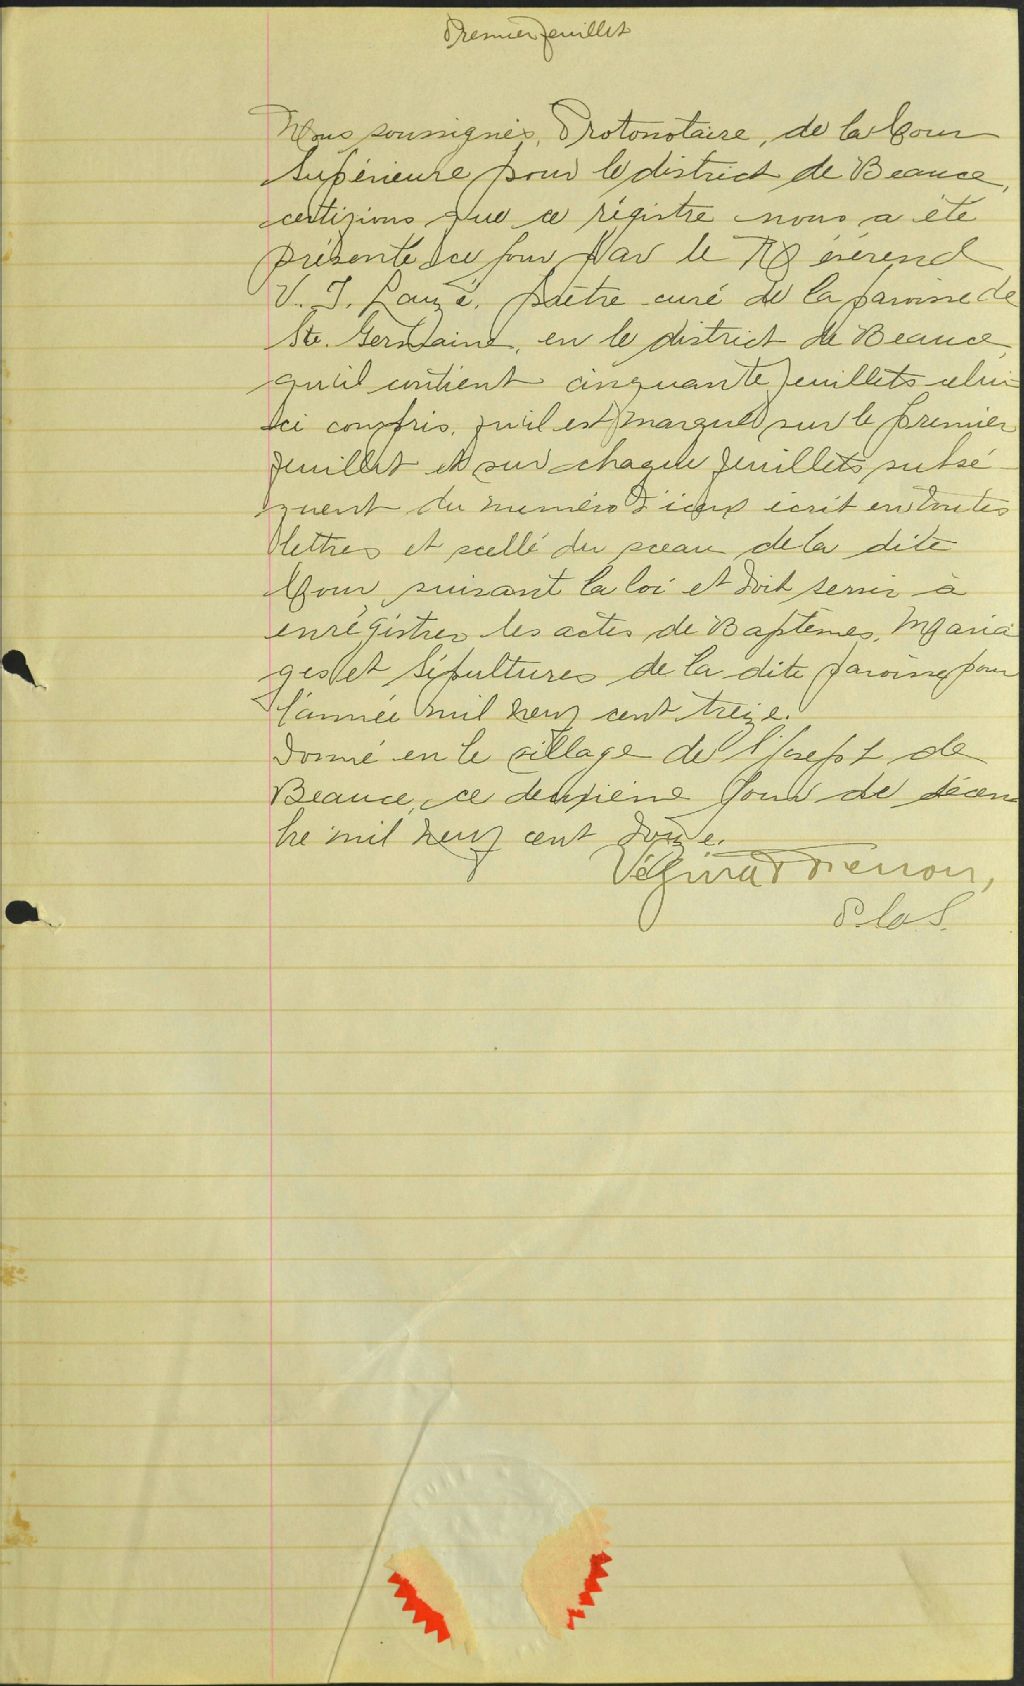 Premier feuillet
Nous soussignés, Protonotaire, de la Cour
Supérieure pour le district de Beauce,
certifions que ce régistre nous a été
présenté ce jour par le Révérend
V. J. Lauzé, prêtre curé de la paroisse de
Ste. Germaine, en le district de Beauce,
qu'il contient cinquante feuillets celui
ci compris, qu'il est marqué sur le premier
feuillet et sur chaque feuillets subsé-
quent du numéro d'iceux écrit en toutes
lettres et scellé du sceau de la dite
Cour, suivant la loi et doit servir à
enrégistrer les actes de Baptêmes, Maria
ges et Sépultures de la dite paroisse pour
l'année mil neuf cent treize.
Donné en le village de St Joseph de
Beauce, ce deuxième jour de décem
bre mil neuf cent douze.
P.C.S.